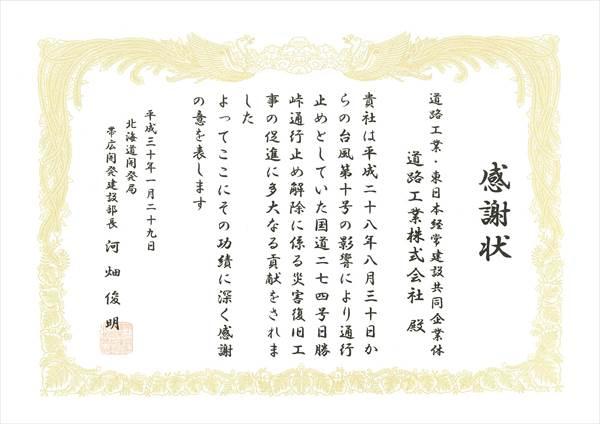 感謝状
道路工業・東日本経常建設共同企業体
道路工業株式会社 殿
貴社は平成二十八年八月三十日か
らの台風第十号の影響により通行
止めとしていた国道二七四号日勝
峠通行止め解除に係る災害復旧工
事の促進に多大なる貢献をされま
した
よってここにその功績に深く感謝
の意を表します
平成三十年一月二十九日
北海道開発局
帯広開発建設部長 河畑俊明